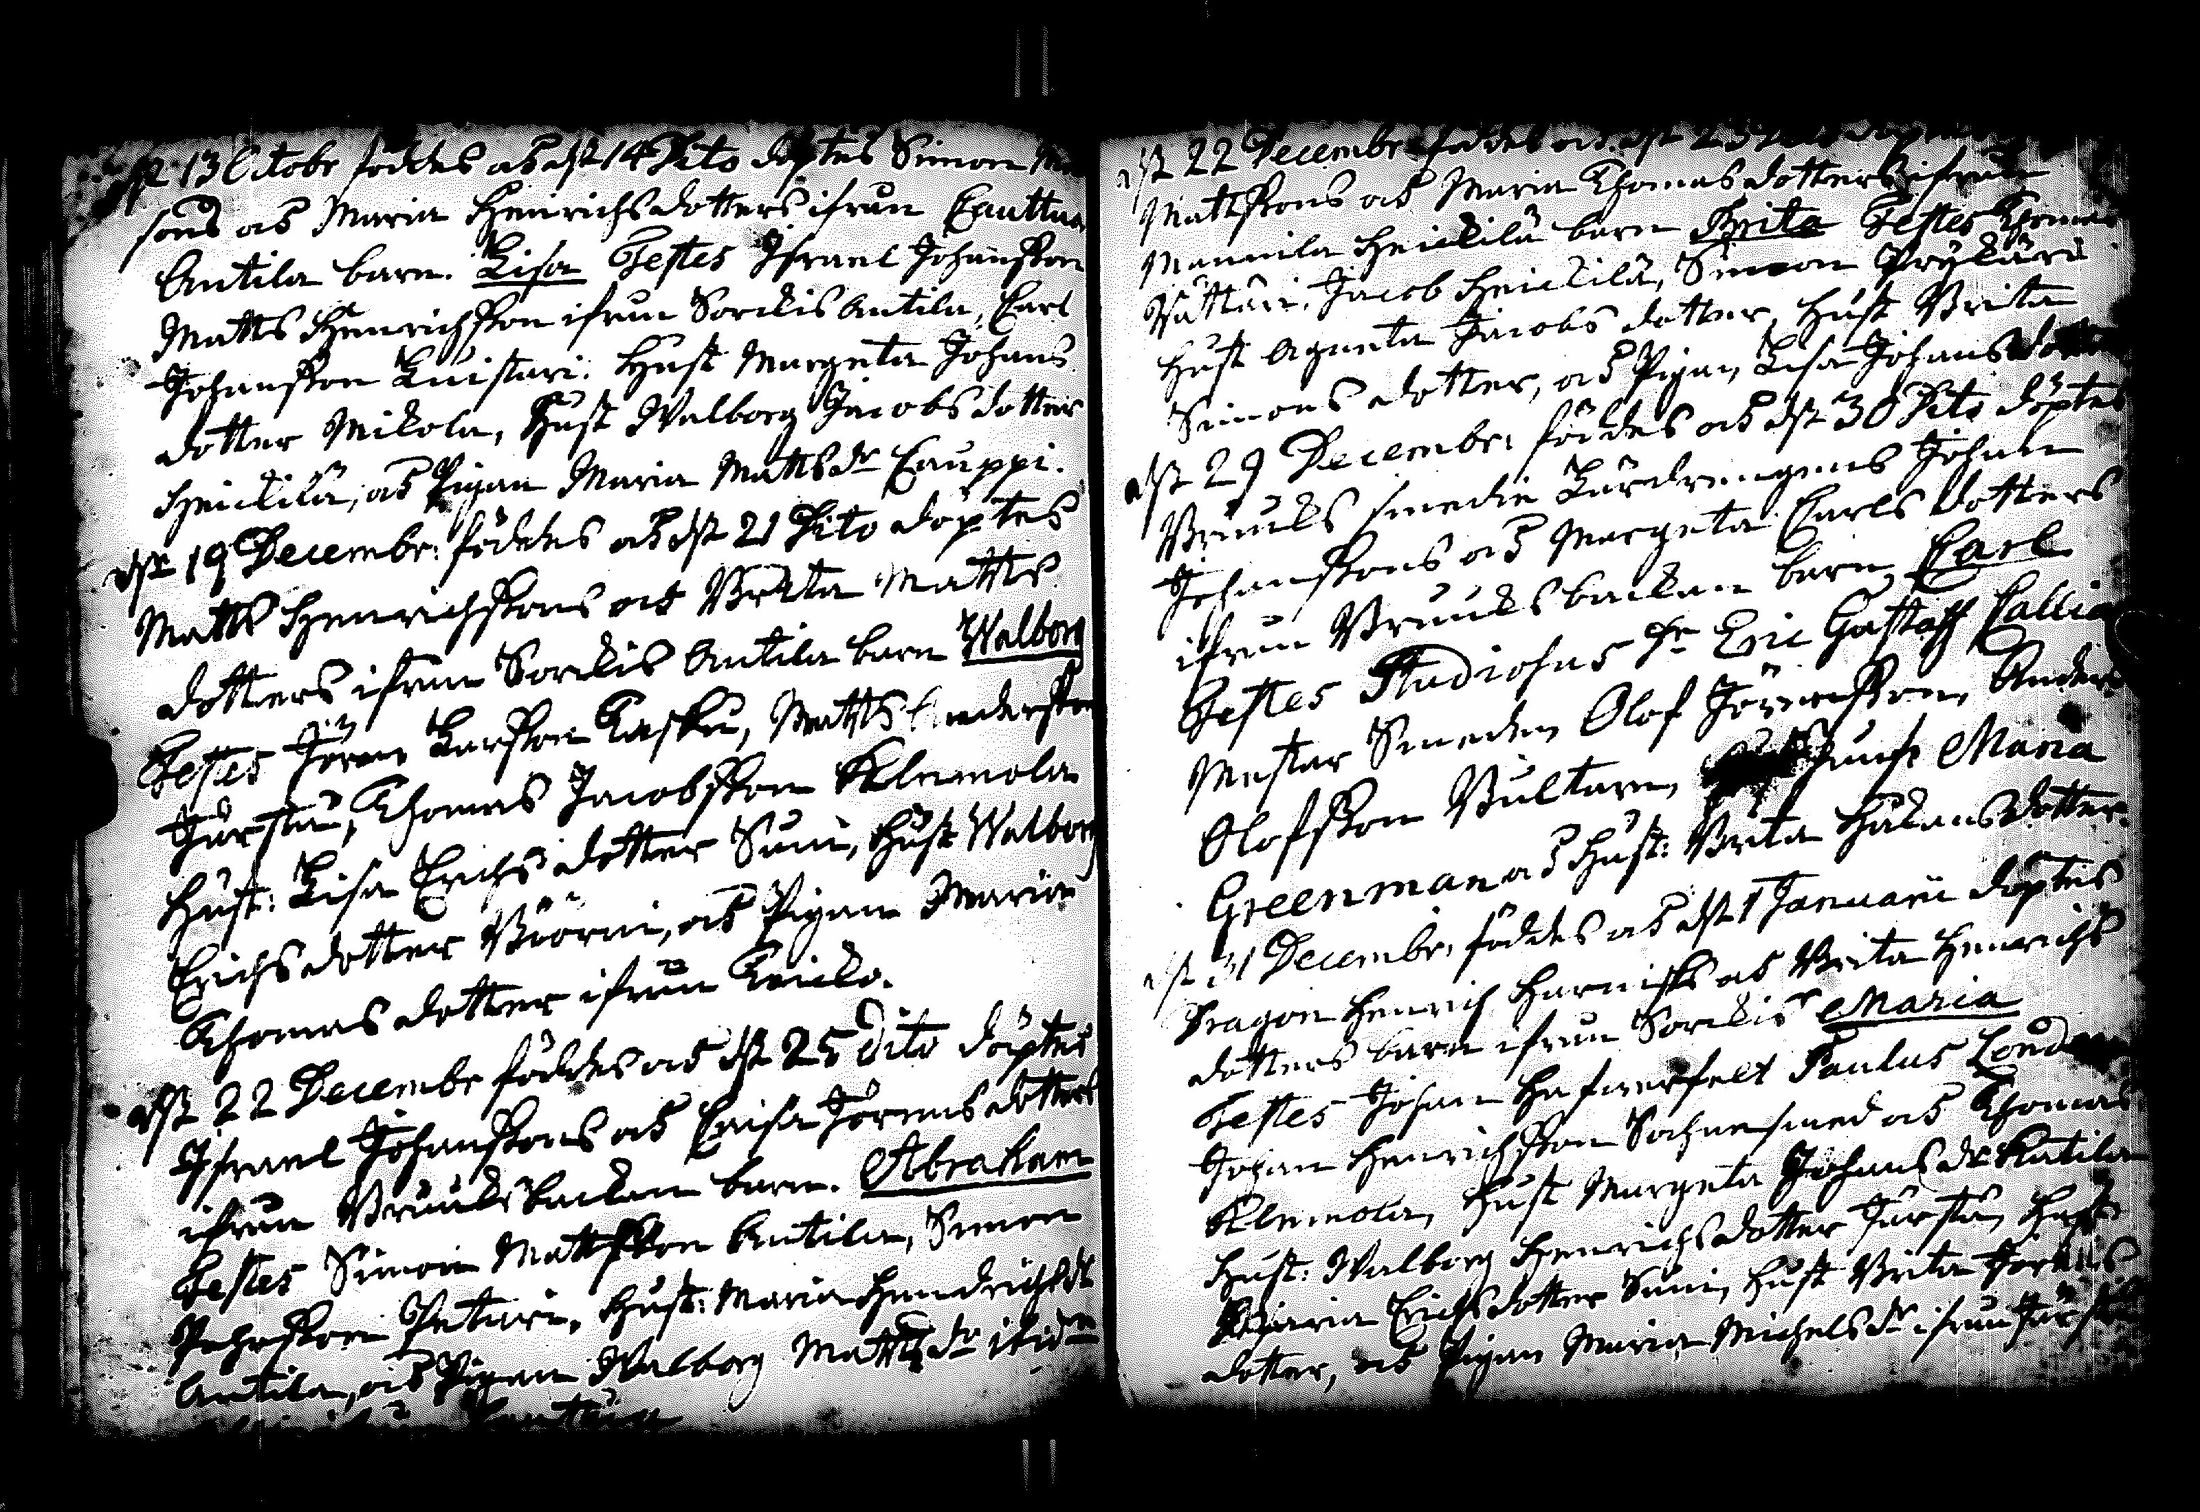 dst 13 Octobr föddes och dst 14 Dito döptes Simon
sons och Maria Henrichsdotters ifrån Cauttua
Antila barn. Lisa Testes Israel Johansson
Matts Henrichsson ifrån Sorckis Antila, Carl
Johansson Luistari. Hust Margeta Johans
dotter Mikola, Hust Walborg Jacobsdotter
Heickilä, och Pigan Maria Matts dr Cauppi.
dst 19 Decembr: föddes och dst 21 Dito döptes
Matts Henrichssons och Brita Matts
dotters ifrån Sorckis Antila barn Walborg
Testes Jören Larsson Kasku, Matts Andersson
Thomas Jacobsson Klemola
Hust: Lisa Erichsdotter Suni, Hust Walborg
Erichsdotter Biörni, och Pigan Maria
Thomasdotter ifrån
dst 22 Decembr föddes och dst 25 dito döptes
Israel Johanssons och Caisa Jörensdotters
ifrån Bruucksbacken barn. Abraham
Testes Simon Mattsson Antila, Simon
Hust: Maria Hendrichsdr
Antila, och Pigan Walborg Matts dr ibidm
dst 22 Decembr föddes och dst 25
Mattssons och Maria Thomasdotters ifrån
Mannila Heickilä barn Brita Testes Thomas
Jacob Heickilä, Simon Prykäri
Hust Agneta Jacobs dotter, Hust Brita
Simons dotter, och Pigan Lisa Johansdotter
dst 29 Decembr: föddes och dst 30 Dito döptes
Bruucks smedie Lärdrengens Johan
Johanssons och Margeta Carls dotters
ifrån Bruucksbacken barn Carl
Testes Studiosus Hr Eric Gustaff Pallia
Mestar Smeden Olof Jörensson, Anders
Olofsson Bultare, hust Maria
Greenman och Hust: Brita Håkansdotter.
dst 31 Decembr: föddes och dst 1 Januarii döptes
Dragon Henrich Harnisks och Brita Henrichs
dotters barn ifrån Sorckis Maria
Testes Johan Hafwerfelt Paulus
Johan Henrichsson Sochnesmed och Thomas
Klemola, Hust Margeta Johans dr Katila
Hust: Walborg Henrichsdotter Hust
Maria Erichsdotter Suni, Hust Brita
dotter, och Pigan Maria Michels dr ifrån